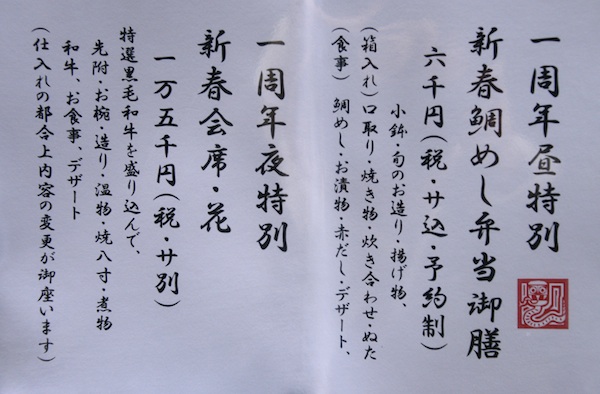 一周年昼特別
新春鯛めし弁当御膳
六千円(税・サ込・予約制)
小鉢・旬のお造り・揚げ物、
(箱入れ)口取り・焼き物・炊き合わせ・ぬた
(食事) 鯛めし・お漬物・赤だし・デザート、
一周年夜特別
新春会席・花
一万五千円(税・サ別)
特選黒毛和牛を盛り込んで、
先附・お椀・造り・温物・焼八寸・煮物
和牛、お食事、デザート
(仕入れの都合上内容の変更が御座います)